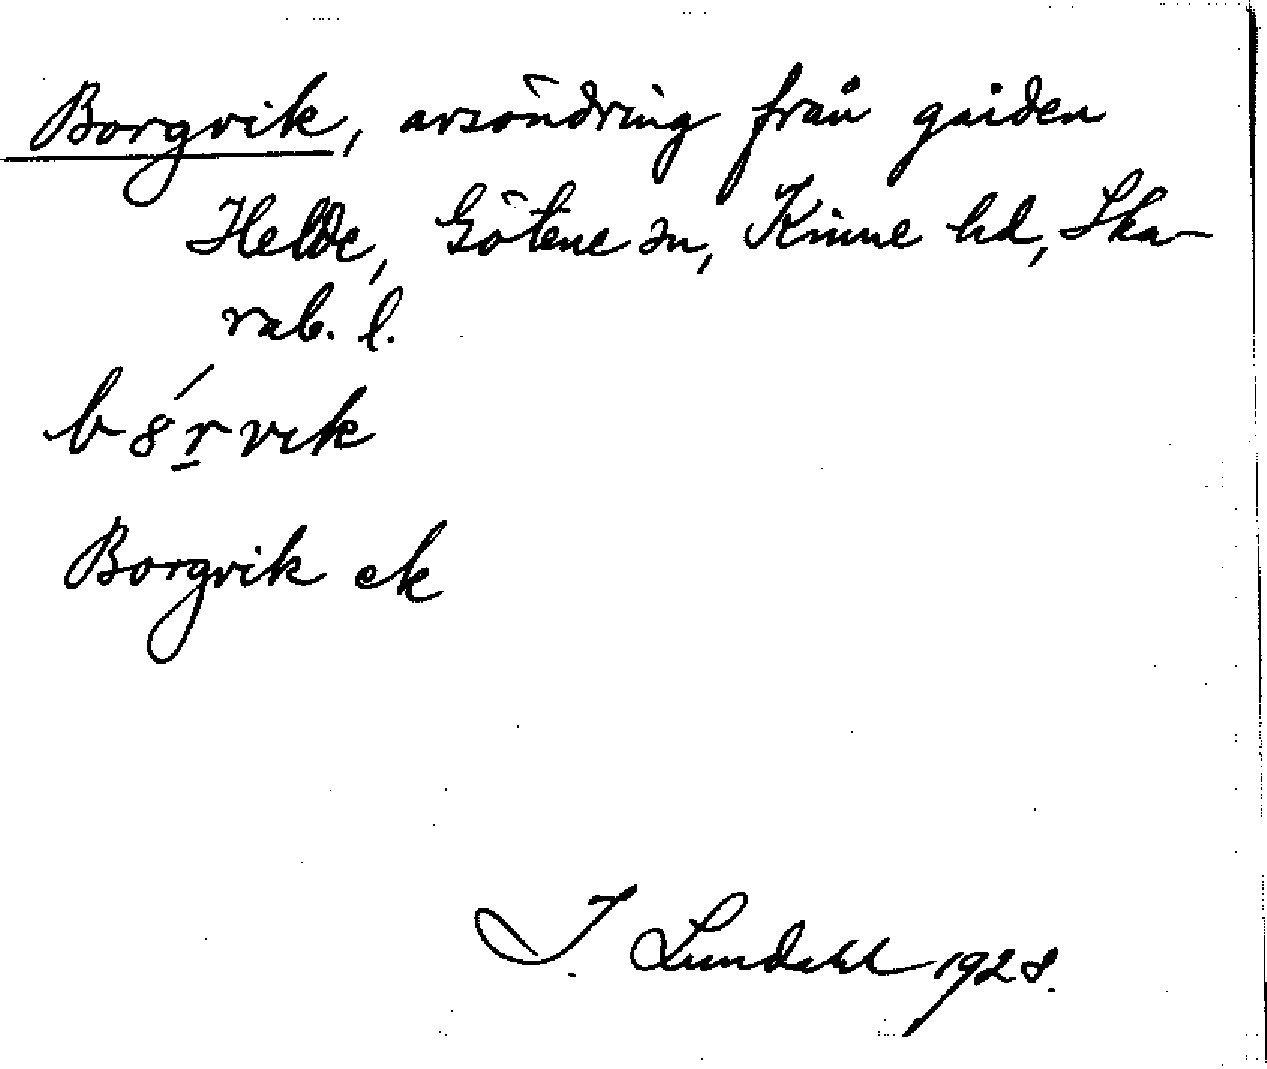 Borgvik, avsöndring från gården
Helde, Götene sn, Kinne hd, Ska-
rab. l.
Borgvik ek
I. Lundahl 1928.